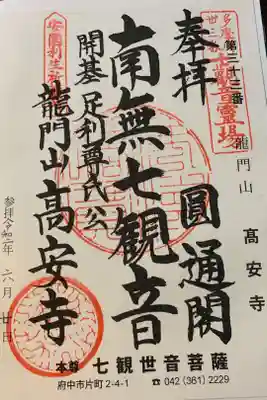 奉拝
多摩川
三十三ヶ所
第三十三番
観音霊場
龍門山
高安寺
圓通閣
南無七観音
開基 足利尊氏公
安國利生
龍門山高安寺
参拝令和二年 六月 廿日
本尊 七観世音菩薩
府中市片町2-4-1 ☎042(361)2229